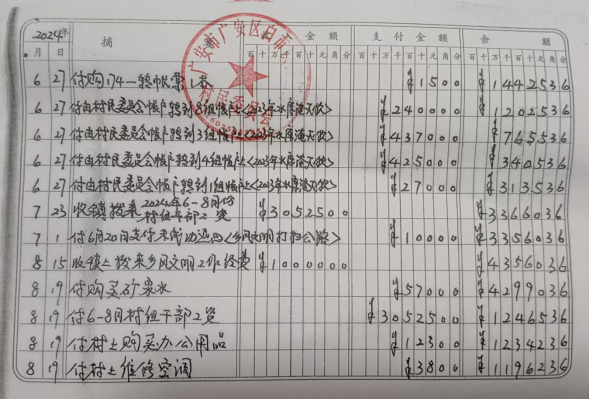 2024年 摘 金额 支付金额 余额
月 日 百十万千百十元角分 百十万千百十元角分 百十万千百十元角分
6 27 付购 1本 ¥1500 ¥1442536
6 27 付由村民委员会帐户转到8组帐户上<2023年水库 > ¥240000 ¥1202536
6 27 付由村民委员会帐户转到3组帐户上<2023年水库 > ¥437000 ¥765536
6 27 付由村民委员会帐户转到4组帐户上<2023年水库 > ¥425000 ¥340536
6 27 付由村民委员会帐户转到1组帐户上<2023年水库 > ¥27000 ¥313536
7 23 收镇拨来2024年6-8月份村组干部工资 ¥3052500 ¥3366036
7 1 付6月20日支付未成功退回<乡风文明打扫公路> ¥10000 ¥3356036
8 15 收镇上拨来乡风文明工作经费 ¥1000000 ¥4356036
8 19 付购买矿泉水 ¥57000 ¥4299036
8 19 付6-8月村组干部工资 ¥3052500 ¥1246536
8 19 付村上购买办公用品 ¥12300 ¥1234236
8 19 付村上维修空调 ¥3800 ¥1196236